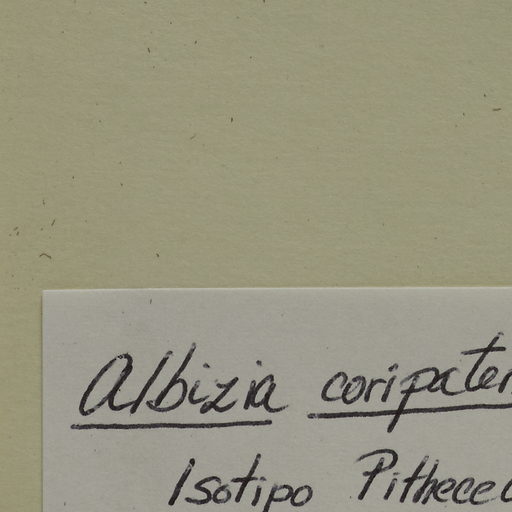 Albizia coripaten
Isotipo Pithece